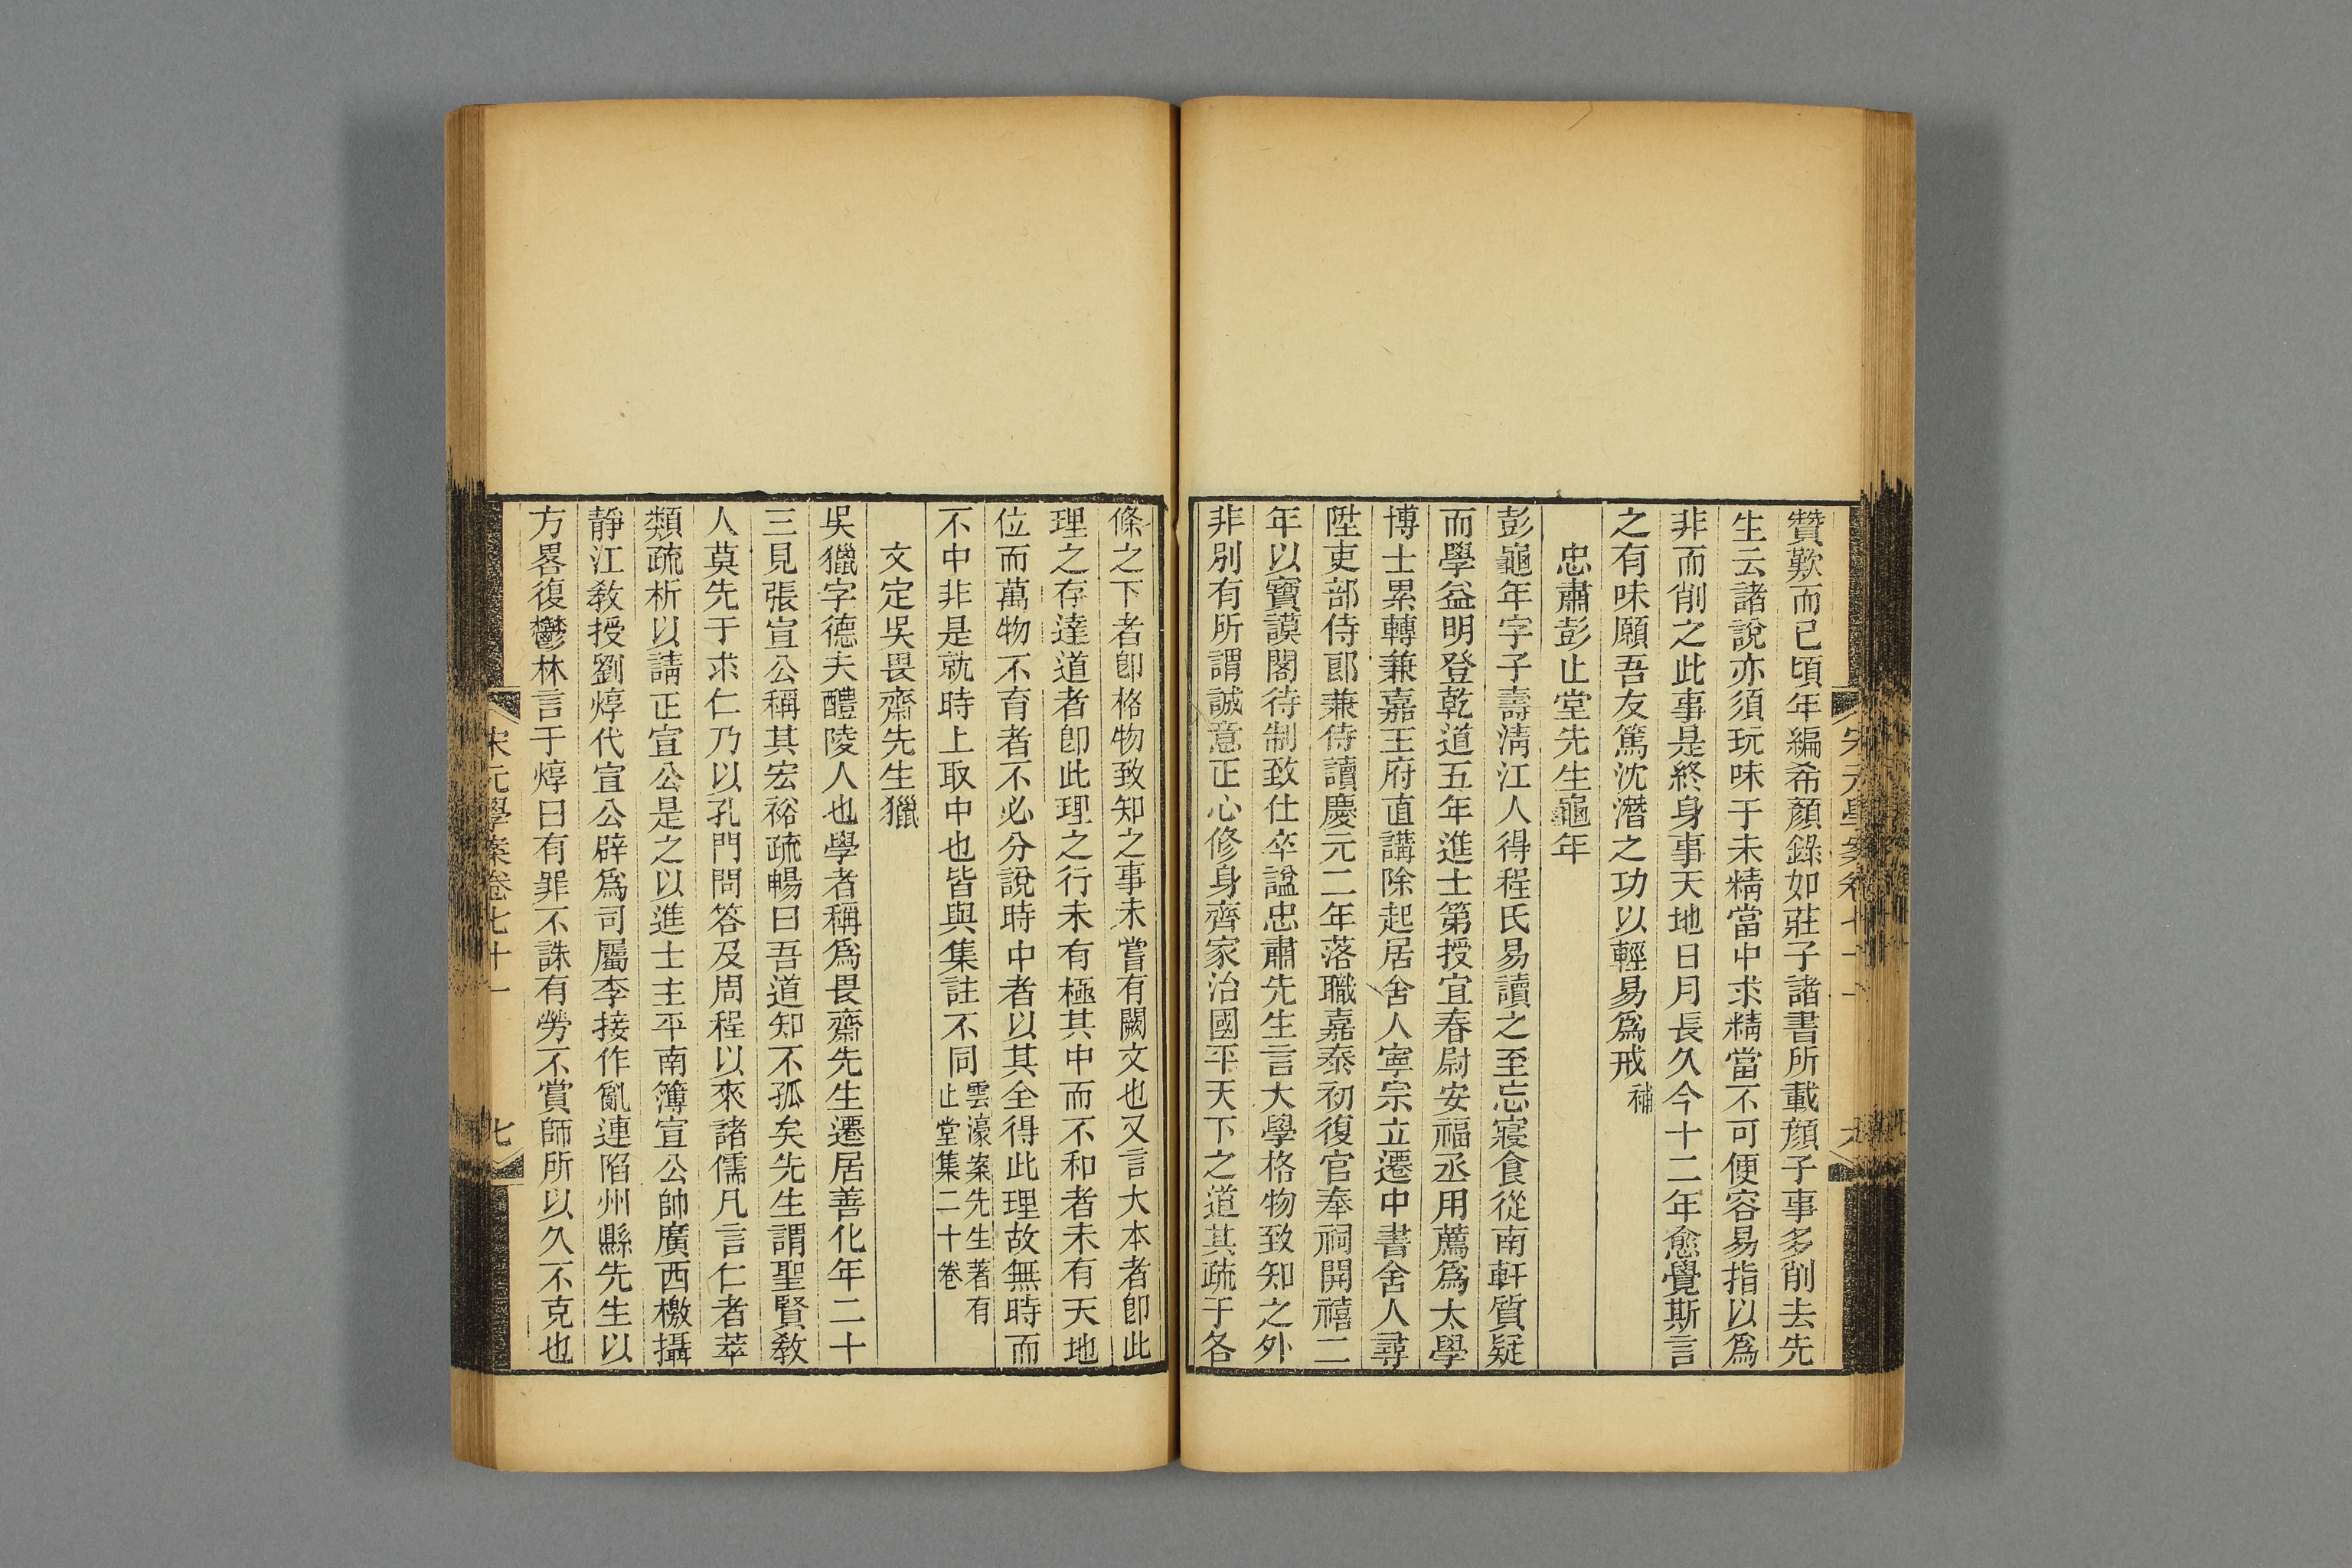 贊歎而已頃年編希顏錄如莊子諸書所載顏子事多削去先
生云諸說亦須玩味于未精當中求精當不可便容易指以爲
非而削之此事是終身事天地日月長久今十二年愈覺斯言
之有味願吾友篤沈潛之功以輕易爲戒補
忠肅彭止堂先生龜年
彭龜年字子壽淸江人得程氏易讀之至忘寢食從南軒質疑
而學益明登乾道五年進士第授宜春尉安福丞用薦爲太學
博士累轉兼嘉王府直講除起居舍人寧宗立遷中書舍人尋
陞吏部侍郎兼侍讀慶元二年落職嘉泰初復官奉祠開禧二
年以寶謨閣待制致仕卒諡忠肅先生言大學格物致知之外
非別有所謂誠意正心修身齊家治國平天下之道其疏于各
條之下者卽格物致知之事未嘗有闕文也又言大本者卽此
理之存達道者卽此理之行未有極其中而不和者未有天地
位而萬物不育者不必分說時中者以其全得此理故無時而
不中非是就時上取中也皆與集註不同雲濠案先生著有
止堂集二十卷
文定吳畏齋先生獵
吳獵字德夫醴陵人也學者稱爲畏齋先生遷居善化年二十
三見張宣公稱其宏裕疏暢曰吾道知不孤矣先生謂聖賢敎
人莫先于求仁乃以孔門問答及周程以來諸儒凡言仁者萃
類疏析以請正宣公是之以進士主平南簿宣公帥廣西檄攝
靜江敎授劉焞代宣公辟爲司屬李接作亂連陷州縣先生以
方畧復鬱林言于焞曰有罪不誅有勞不賞師所以久不克也
宋元學案卷七十一
七